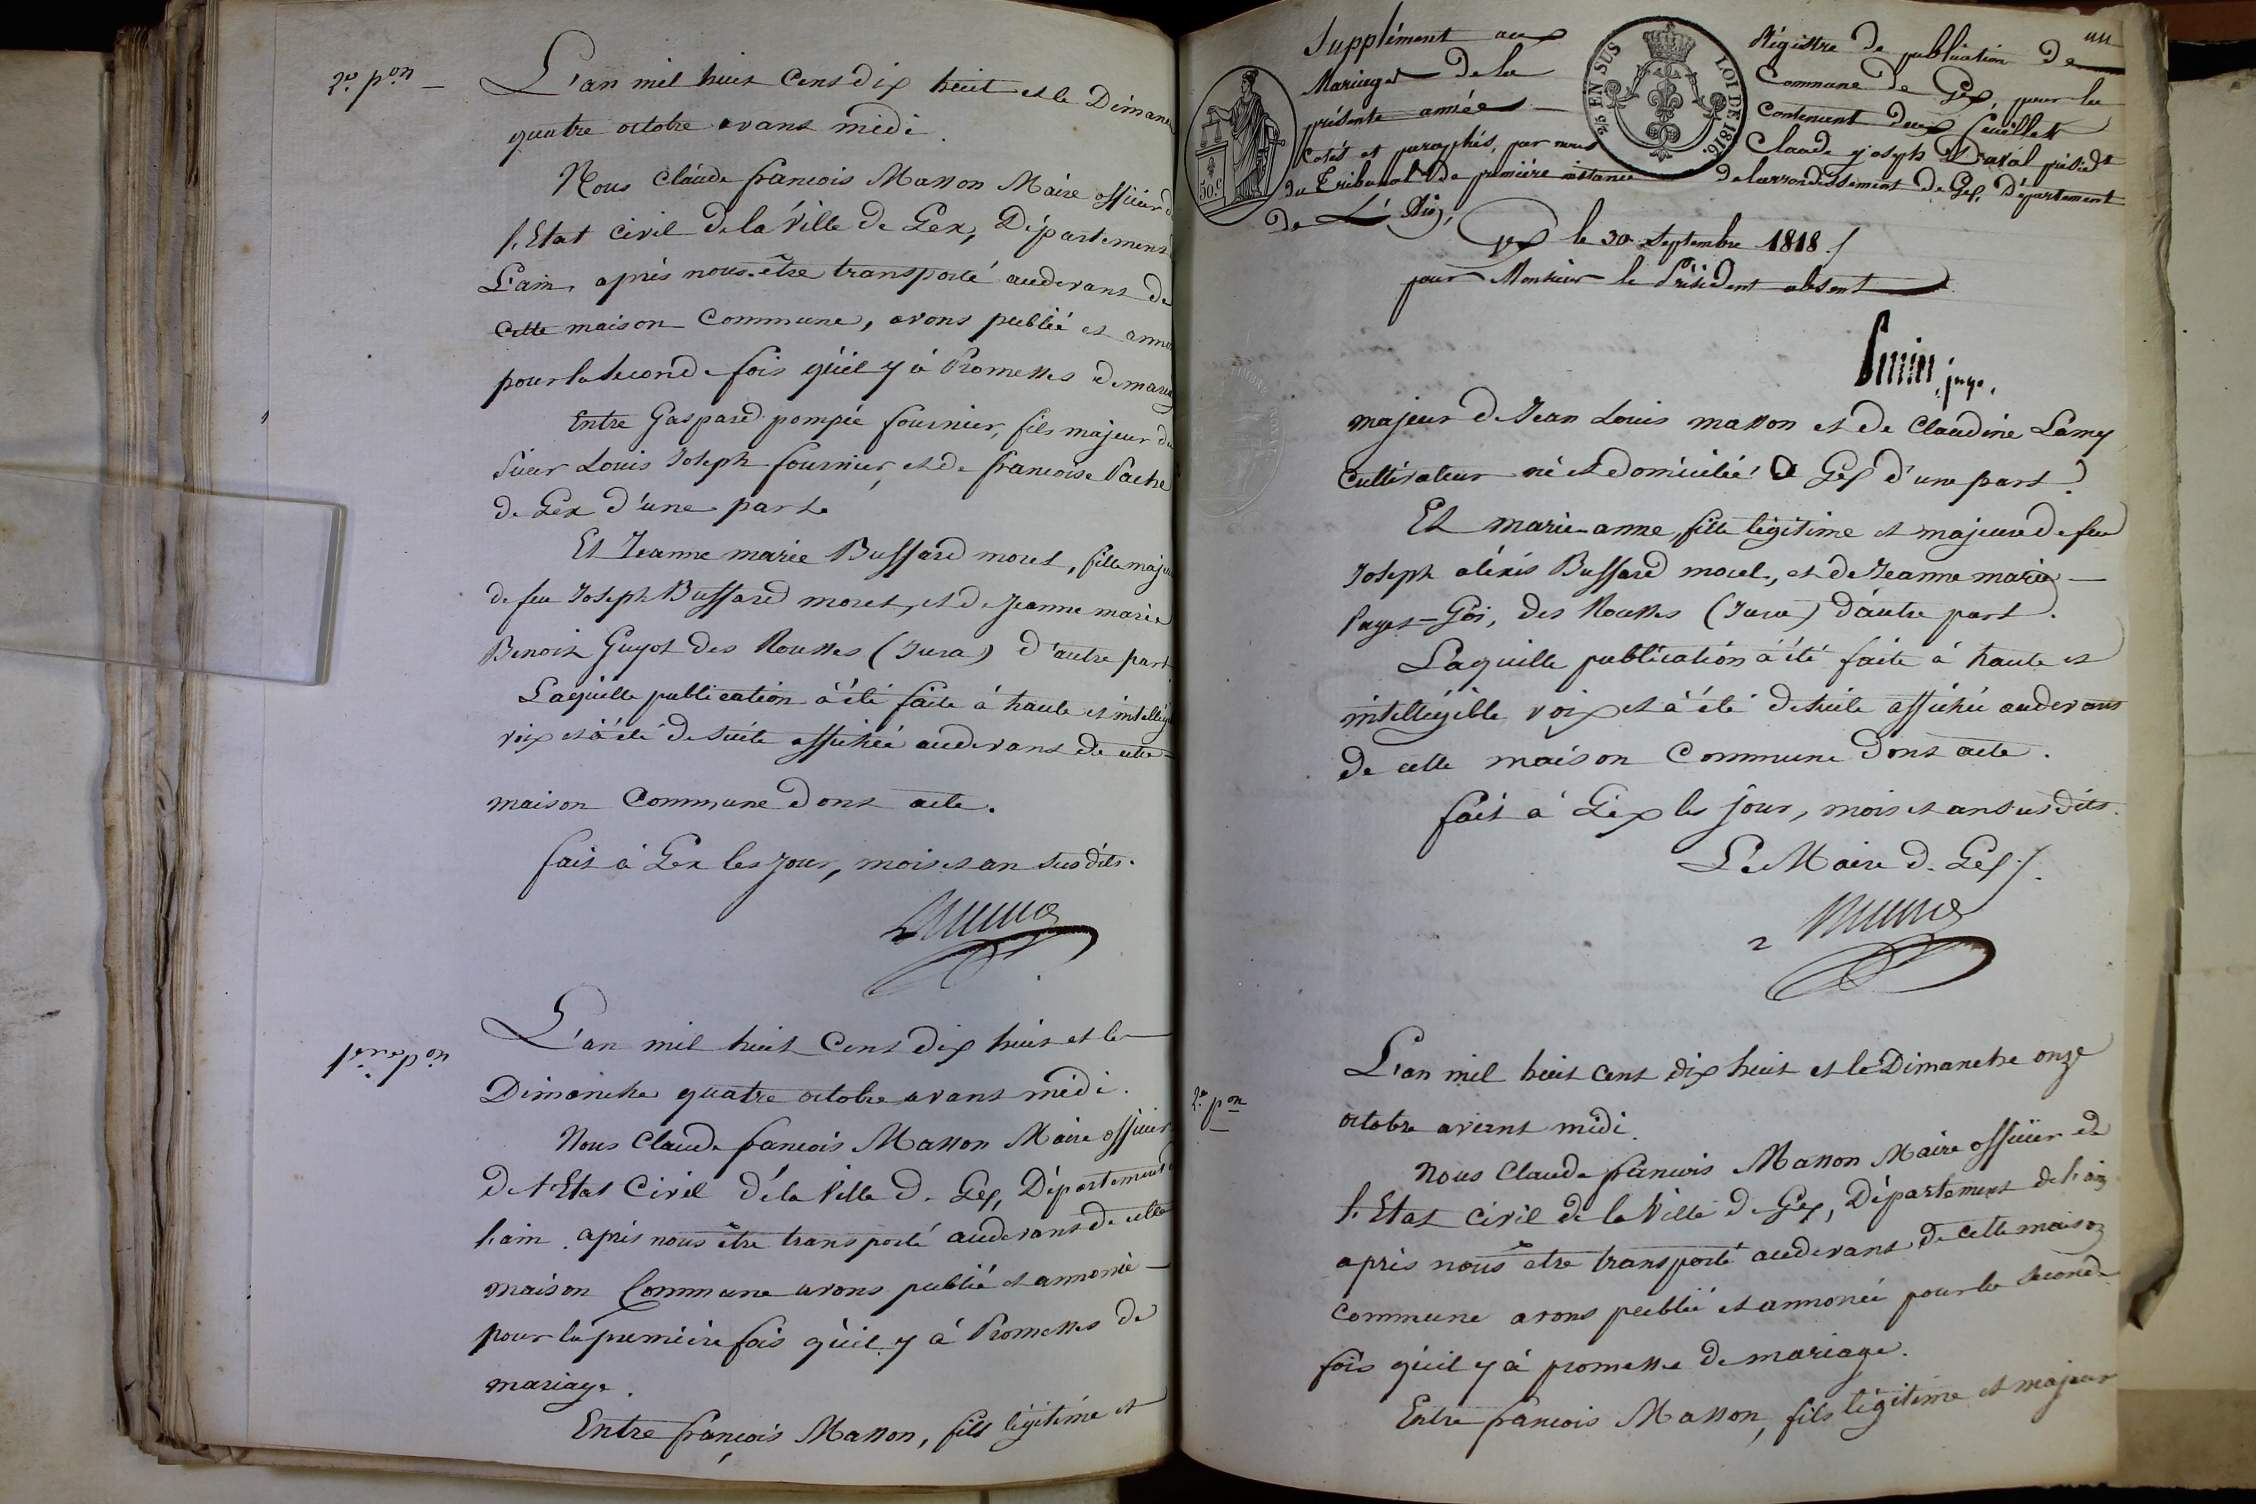 2.e p.on
L'an mil huit Cent dix huit et le Dimanc
quatre octobre avant midi.
Nous Claude francois Masson Maire officier d
l'Etat Civil de la Ville de Gex, Département
L'ain, après nous être transporté audevant de
cette maison Commune, avons publié et anno
pour la seconde fois qu'il y à Promesses de maria
Entre Gaspard pompée fournier, fils majeur du
Sieur Louis Joseph fournier, et de francoise Pache
de Gex d'une part.
Et Jeanne marie Buffard moret, fille maje
de feu Joseph Buffard moret, et de Jeanne marie
Benoit Guyot des Rousses (Jura) d'autre part
Laquelle publication à été faite à haute et intellig
voix et à été de suite affichée audevant de cette
maison Commune dont acte.
fait à Gex les jour, mois et an susdits.
1.ere p.on
L'an mil huit Cent dix huit et le
Dimanche quatre octobre avant midi.
Nous Claude francois Masson Maire officier
De l'Etat Civil de la Ville de Gex, Département d
l'ain. après nous être transporté audevant de cette
maison Commune avons publié et annoncé
pour la première fois qu'il y à Promesses de
mariage.
Entre françois Masson, fils légitime et
Supplément au Régistre de publication de un
Mariages de la Commune de Gex, pour la
présente année contenant deux feuillets
Cotés et paraphés, par nous Claude Joseph Duval présidt
du Tribunal de première instance de larrondissement de Gex, Département
de L'Ain,
25 EN SUS
LOI DE 1816.
50.c
Gex le 30 Septembre 1818 /
pour Monsieur le Président absent
juge.
majeur de Jean Louis masson et de Claudine Lamy
Cultivateur né et domicilié à Gex d'une part.
Et marie-anne, fille légitime et majeure de feu
Joseph aléxis Buffard morel, et de Jeanne marie
Paget-Goi, des Rousses (Jura) d'autre part.
Laquelle publication à été faite à haute et
intelligible voix et à été de suite affichée audevant
de cette maison Commune dont acte.
fait à Gex les jour, mois et an susdits.
Le Maire de Gex /.
2.e p.on
L'an mil huit Cent dix huit et le Dimanche onze
octobre avant midi.
Nous Claude francois Masson Maire officier de
l'Etat Civil de la Ville de Gex, Département de l'ain
après nous être transporté audevant de cette maison
Commune avons publié et annoncé pour la seconde
fois qu'il y à promesse de mariage.
Entre francois Masson, fils légitime et majeur